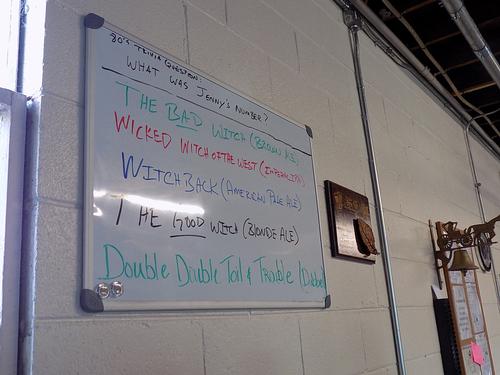 80's TRIVIA QUESTION:
WHAT WAS JENNY'S NUMBER?
THE BAD WITCH (BROWN ALE)
WICKED WITCH OF THE WEST (IMPERIAL IPA)
WITCHBACK (AMERICAN PALE ALE)
THE GOOD WITCH (BLONDE ALE)
Double Double Toil & Trouble (Dubbel)